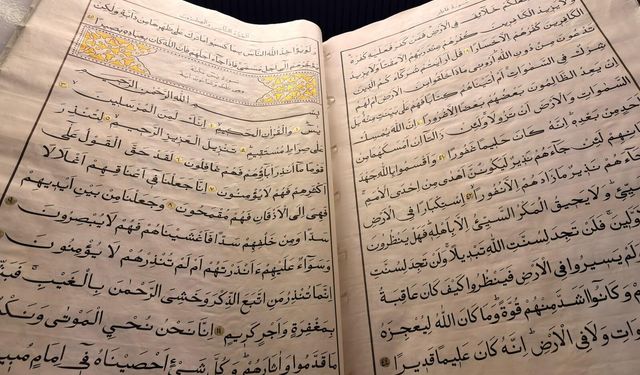 لَكُمْ خَلَائِفَ فِي الْاَرْضِ فَمَنْ كَفَرَ فَعَلَيْهِ كُفْرُهُ
الْكَافِرِينَ كُفْرُهُمْ عِنْدَ رَبِّهِمْ اِلَّا مَقْتًا وَلَا يَزِيدُ
الْكَافِرِينَ كُفْرُهُمْ اِلَّا خَسَارًا قُلْ اَرَاَيْتُمْ شُرَكَاءَكُمُ الَّذِينَ
تَدْعُونَ مِنْ دُونِ اللّٰهِ اَرُونِي مَاذَا خَلَقُوا مِنَ الْاَرْضِ اَمْ لَهُمْ
شِرْكٌ فِي السَّمٰوَاتِ اَمْ اٰتَيْنَاهُمْ كِتَابًا فَهُمْ عَلٰى بَيِّنَتٍ مِنْهُ بَلْ
اِنْ يَعِدُ الظَّالِمُونَ بَعْضُهُمْ بَعْضًا اِلَّا غُرُورًا اِنَّ اللّٰهَ يُمْسِكُ
السَّمٰوَاتِ وَالْاَرْضَ اَنْ تَزُولَا وَلَئِنْ زَالَتَا اِنْ اَمْسَكَهُمَا مِنْ
اَحَدٍ مِنْ بَعْدِهِ اِنَّهُ كَانَ حَلِيمًا غَفُورًا وَاَقْسَمُوا بِاللّٰهِ جَهْدَ
لَئِنْ جَاءَهُمْ نَذِيرٌ لَيَكُونُنَّ اَهْدٰى مِنْ اِحْدَى الْاُمَمِ
جَاءَهُمْ نَذِيرٌ مَا زَادَهُمْ اِلَّا نُفُورًا اسْتِكْبَارًا فِي الْاَرْضِ
وَلَا يَحِيقُ الْمَكْرُ السَّيِّئُ اِلَّا بِاَهْلِهِ فَهَلْ يَنْظُرُونَ
فَلَنْ تَجِدَ لِسُنَّتِ اللّٰهِ تَبْدِيلًا وَلَنْ تَجِدَ لِسُنَّتِ
يَسِيرُوا فِي الْاَرْضِ فَيَنْظُرُوا كَيْفَ كَانَ عَاقِبَةُ
وَكَانُوا اَشَدَّ مِنْهُمْ قُوَّةً وَمَا كَانَ اللّٰهُ لِيُعْجِزَهُ
وَلَا فِي الْاَرْضِ اِنَّهُ كَانَ عَلِيمًا قَدِيرًا ٤٤
وَلَوْ يُؤَاخِذُ اللّٰهُ النَّاسَ بِمَا كَسَبُوا مَا تَرَكَ عَلٰى ظَهْرِهَا مِنْ دَابَّةٍ وَلٰكِنْ
يُؤَخِّرُهُمْ اِلٰى اَجَلٍ مُسَمًّى فَاِذَا جَاءَ اَجَلُهُمْ فَاِنَّ اللّٰهَ كَانَ بِعِبَادِهِ بَصِيرًا ٤٥
بِسْمِ اللّٰهِ الرَّحْمٰنِ الرَّحِيمِ
يٰسٓ وَالْقُرْاٰنِ الْحَكِيمِ اِنَّكَ لَمِنَ الْمُرْسَلِينَ
عَلٰى صِرَاطٍ مُسْتَقِيمٍ تَنْزِيلَ الْعَزِيزِ الرَّحِيمِ لِتُنْذِرَ
قَوْمًا مَا اُنْذِرَ اٰبَاؤُهُمْ فَهُمْ غَافِلُونَ لَقَدْ حَقَّ الْقَوْلُ عَلٰى
اَكْثَرِهِمْ فَهُمْ لَا يُؤْمِنُونَ اِنَّا جَعَلْنَا فِي اَعْنَاقِهِمْ اَغْلَالًا
فَهِيَ اِلَى الْاَذْقَانِ فَهُمْ مُقْمَحُونَ وَجَعَلْنَا مِنْ بَيْنِ اَيْدِيهِمْ
سَدًّا وَمِنْ خَلْفِهِمْ سَدًّا فَاَغْشَيْنَاهُمْ فَهُمْ لَا يُبْصِرُونَ
وَسَوَاءٌ عَلَيْهِمْ ءَاَنْذَرْتَهُمْ اَمْ لَمْ تُنْذِرْهُمْ لَا يُؤْمِنُونَ
اِنَّمَا تُنْذِرُ مَنِ اتَّبَعَ الذِّكْرَ وَخَشِيَ الرَّحْمٰنَ بِالْغَيْبِ فَبَشِّرْهُ
بِمَغْفِرَةٍ وَاَجْرٍ كَرِيمٍ اِنَّا نَحْنُ نُحْيِي الْمَوْتٰى وَنَكْتُبُ
مَا قَدَّمُوا وَاٰثَارَهُمْ وَكُلَّ شَيْءٍ اَحْصَيْنَاهُ فِي اِمَامٍ مُبِينٍ